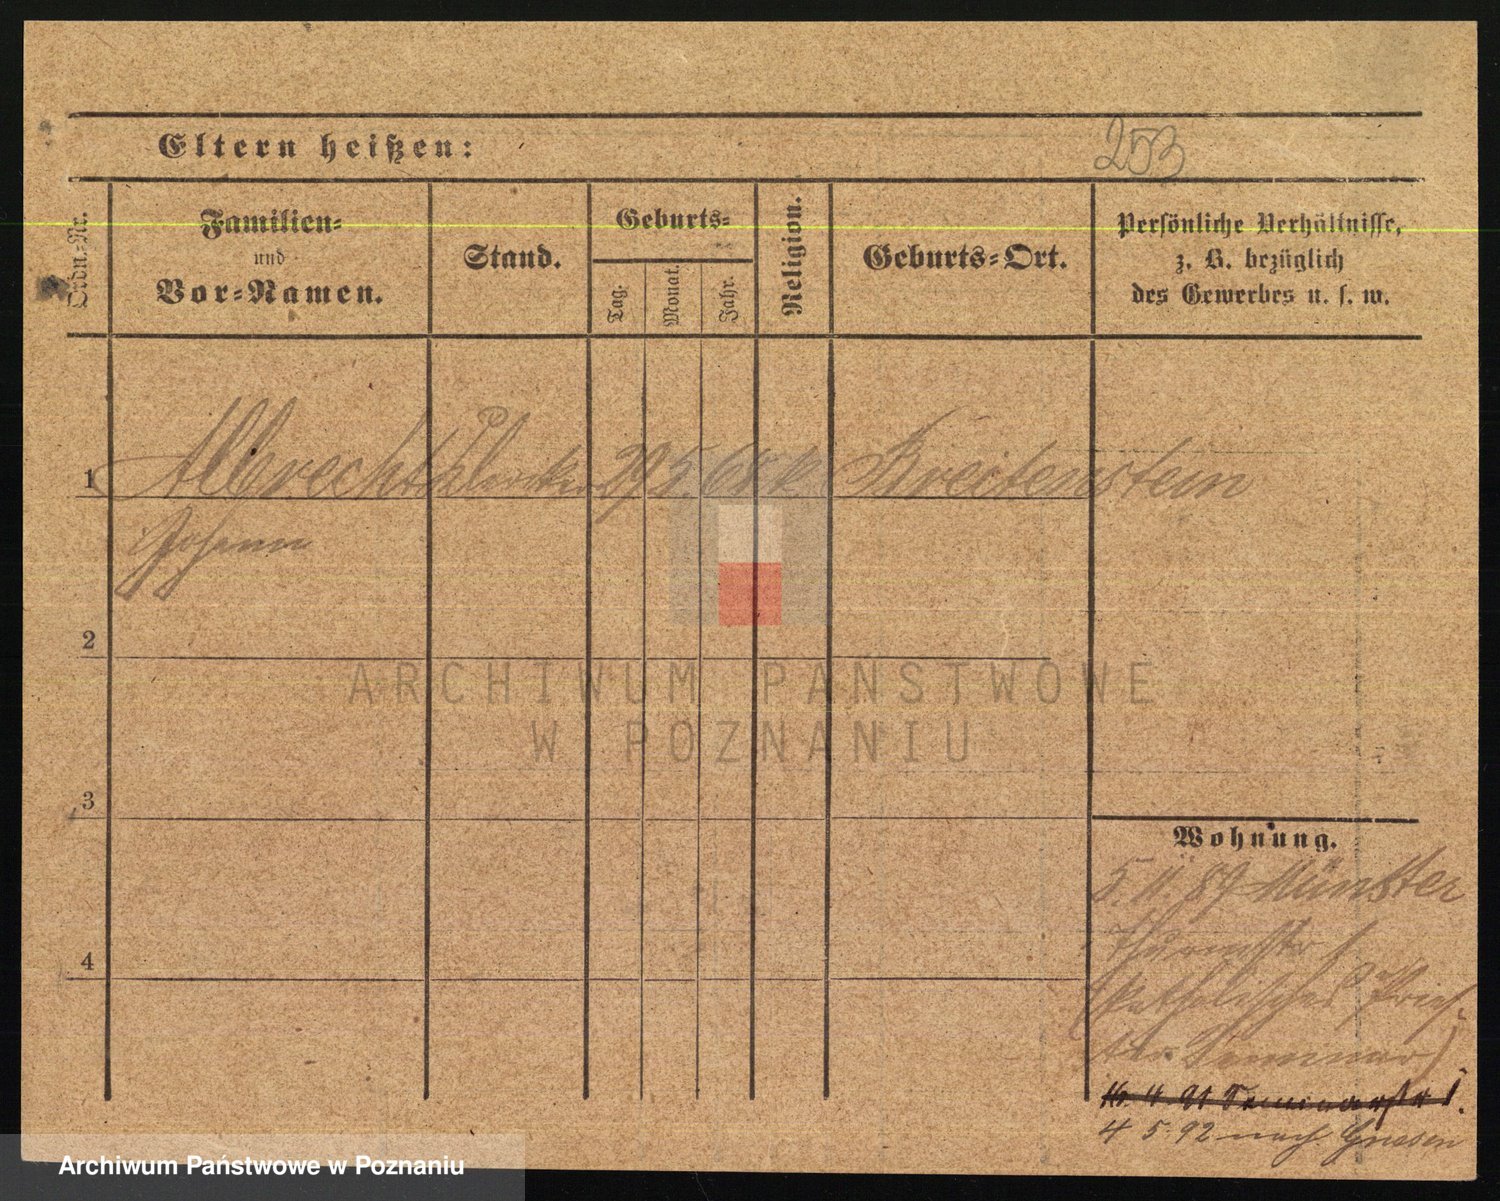 253
Eltern heißen:
Ordn.-Nr.
Familien-
und
Vor-Namen.
Stand.
Geburts-
Tag.
Monat.
Jahr.
Religion.
Geburts-Ort.
Persönliche Verhältnisse,
z. B. bezüglich
des Gewerbes u. s. w.
1 Albrecht 29 5. 68 k Breitenstein
Johann
2
3
4
Wohnung.
5. 11. 89 Münster
Thurmstr 1
(Katholisches Pries-
ter Seminar)
4. 91 Seminarstr 1.
4 5. 92 nach Gnesen
ARCHIWUM PAŃSTWOWE
W POZNANIU
Archiwum Państwowe w Poznaniu